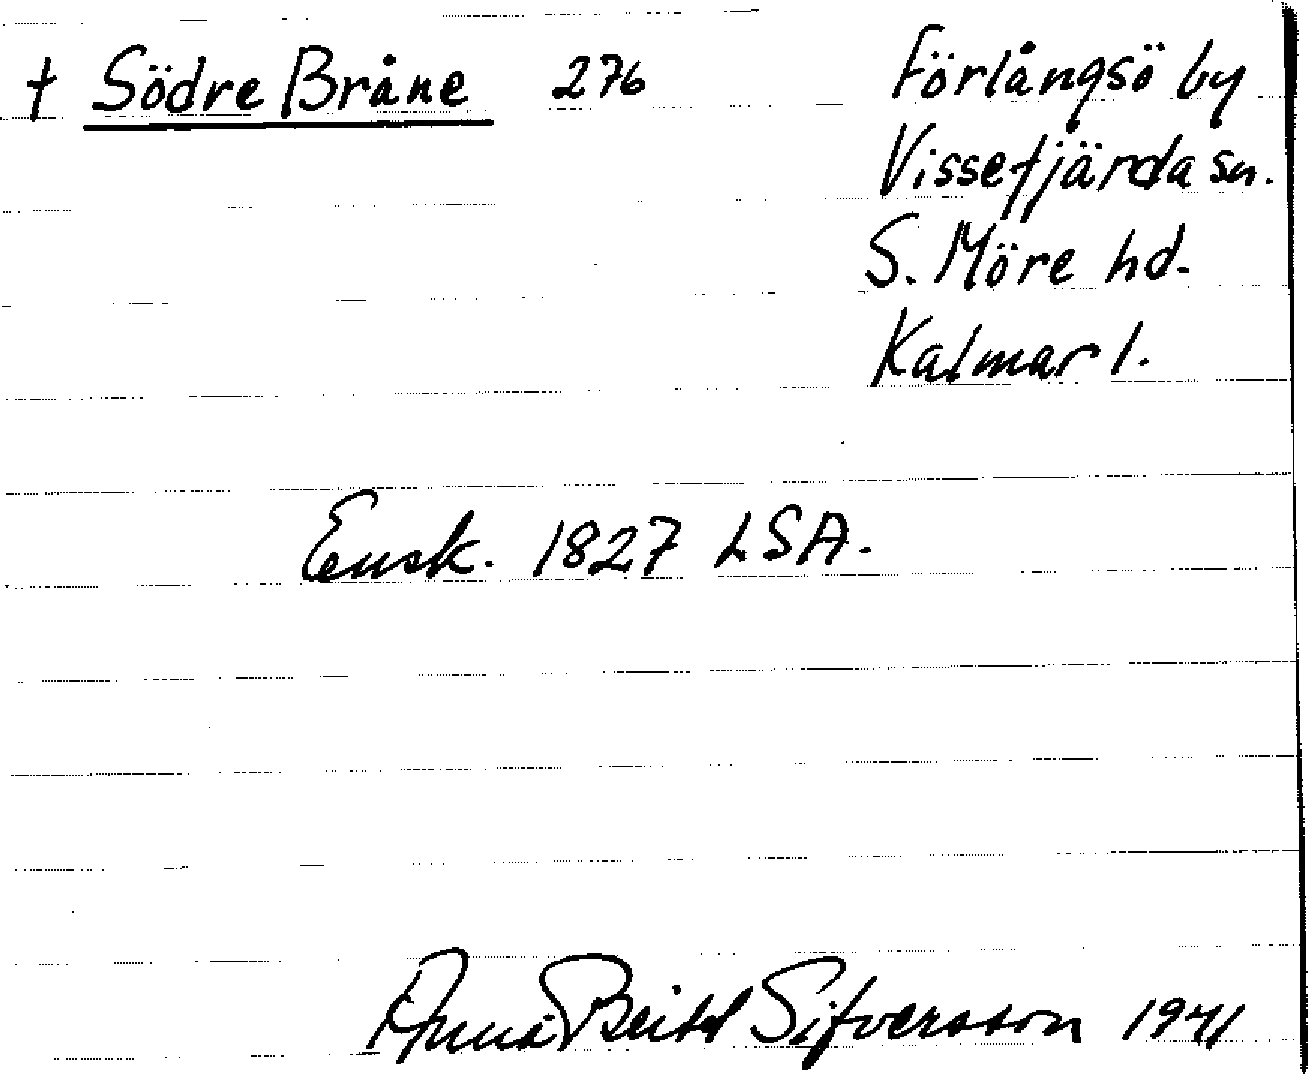 † Södre Bråne 276
Förlångsö by
Vissefjärda sn.
S. Möre hd.
Kalmar l.
Ensk. 1827 LSA.
Anna Sifversson 1941